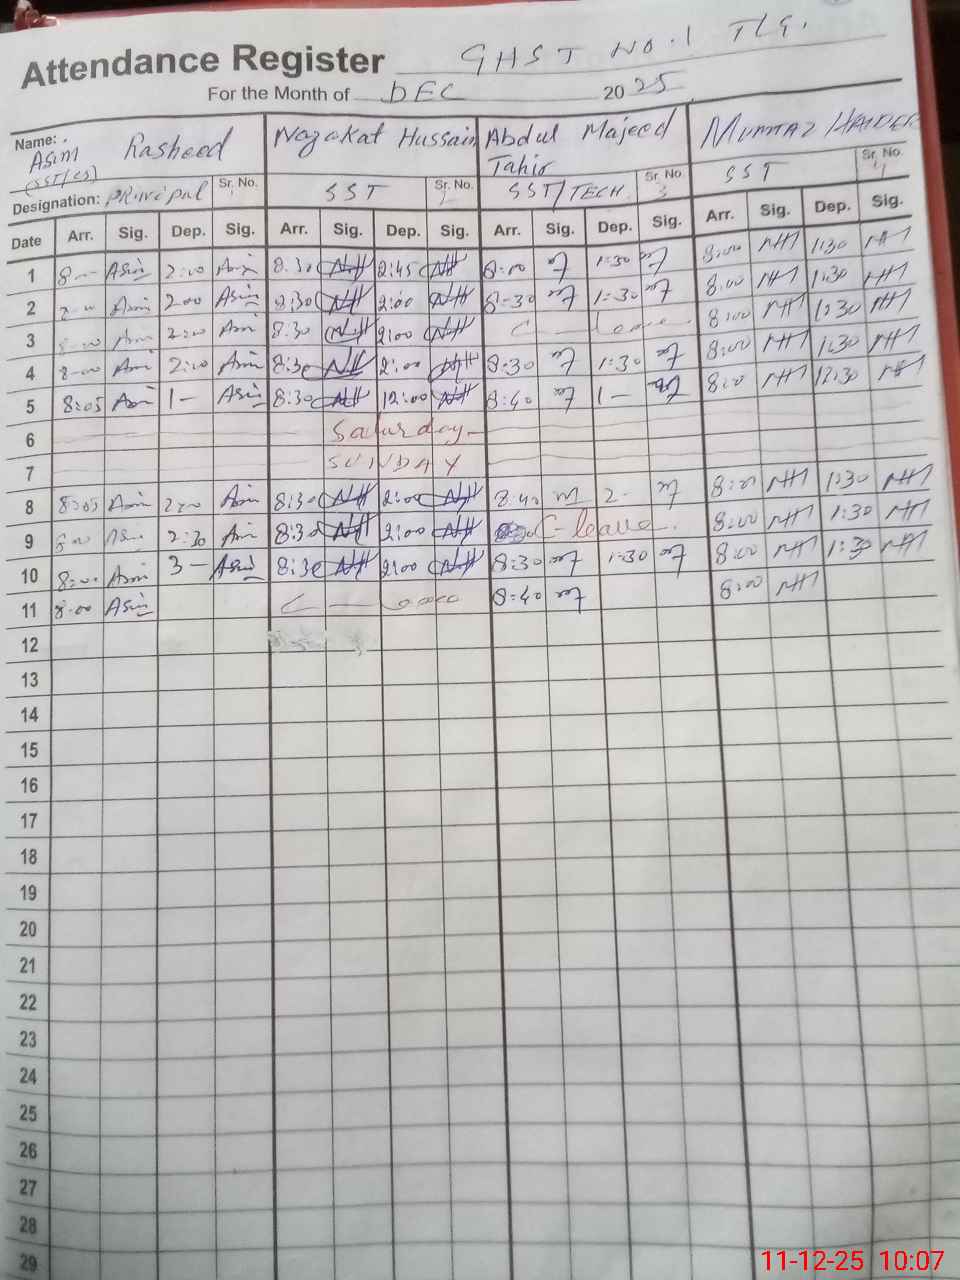 Attendance Register GHST No.1 TLG.
For the Month of DEC 2025
Name: Asim Rasheed (SST/CS) Nazakat Hussain Abdul Majeed Tahir Mumtaz Haider
Designation: Principal Sr. No. SST Sr. No. SST/TECH. Sr. No. 3 SST Sr. No. 4
Date Arr. Sig. Dep. Sig. Arr. Sig. Dep. Sig. Arr. Sig. Dep. Sig. Arr. Sig. Dep. Sig.
1 8— Asim 2:00 Asim 8:30 NH 2:45 NH 8:00 1:30 8:00 MH 1:30 MH
2 Asim 2:00 Asim 8:30 NH 2:00 NH 8:30 1:30 8:00 MH 1:30 MH
3 Asim 2:00 Asim 8:30 NH 2:00 NH C — leave 8:00 MH 1:30 MH
4 8:00 Asim 2:00 Asim 8:30 NH 2:00 NH 8:30 1:30 8:00 MH 1:30 MH
5 8:05 Asim 1— Asim 8:30 NH 12:00 NH 8:40 1— 8:00 MH 12:30 MH
6 Saturday
7 SUNDAY
8 8:05 Asim 2:00 Asim 8:30 NH 2:00 NH 8:40 2- 8:00 MH 1:30 MH
9 8:00 Asim 2:30 Asim 8:30 NH 2:00 NH C-leave. 8:00 MH 1:30 MH
10 8:00 Asim 3— Asim 8:30 NH 2:00 NH 8:30 1:30 8:00 MH 1:30 MH
11 8:00 Asim C — 8:40 8:00 MH
12
13
14
15
16
17
18
19
20
21
22
23
24
25
26
27
28
29
11-12-25 10:07